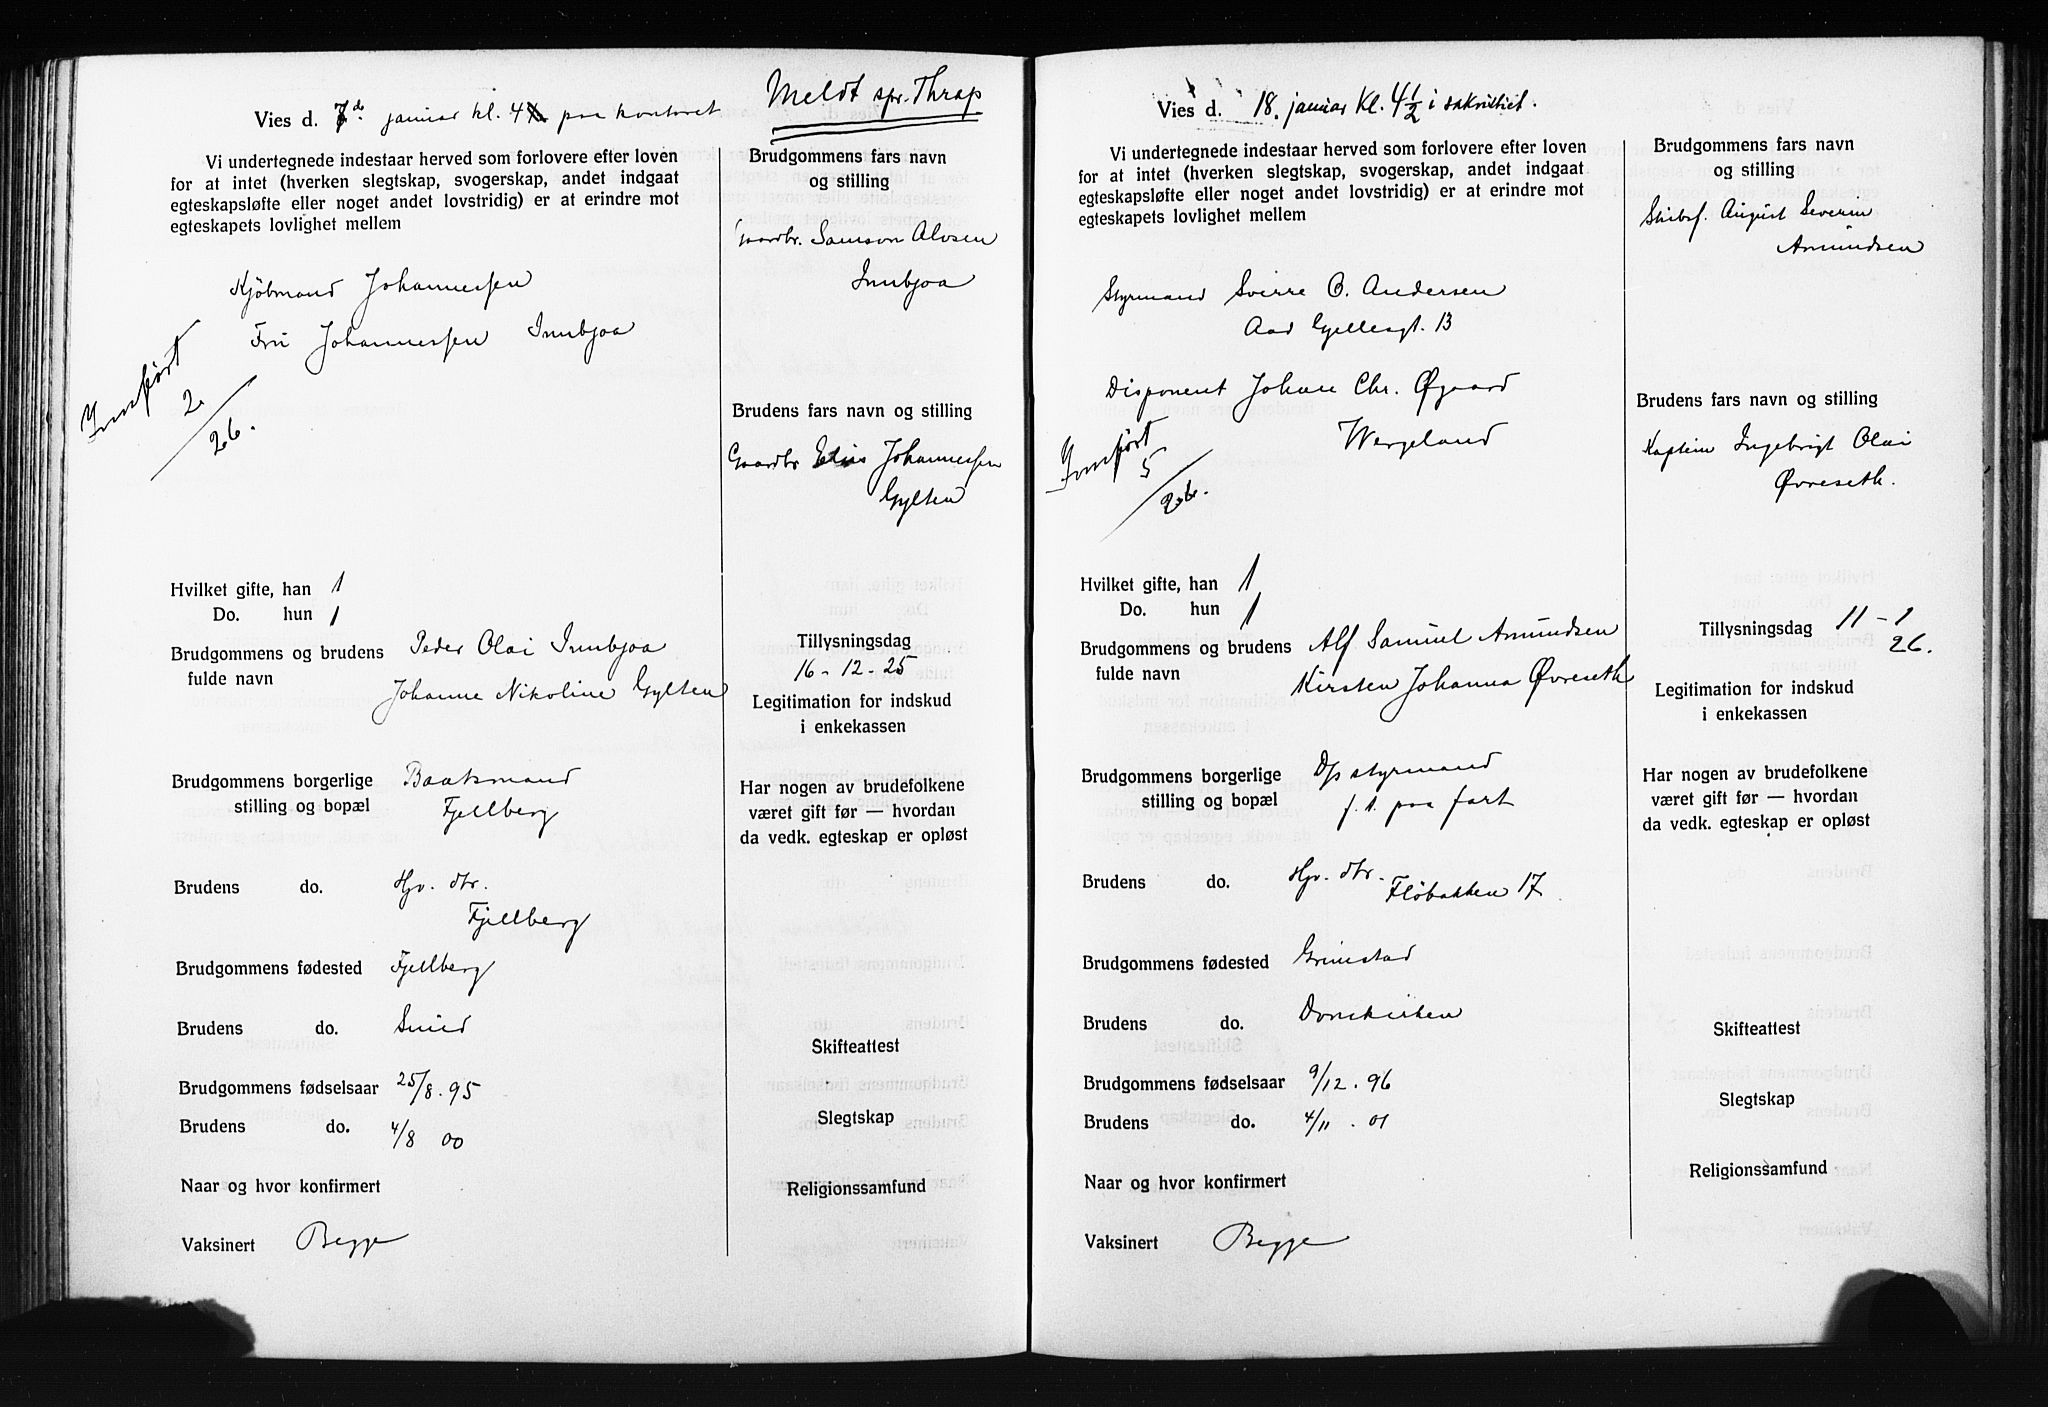 Vies d. 7de januar kl. 4 paa kontoret
Meldt spr. Thrap
Vi undertegnede indestaar herved som forlovere efter loven
for at intet (hverken slegtskap, svogerskap, andet indgaat
egteskapsløfte eller noget andet lovstridig) er at erindre mot
egteskapets lovlighet mellem
Brudgommens fars navn
og stilling
Gaardbr. Samson Olosen
Innbjoa
Kjöbmand Johannessen
Fru Johannessen Innbjoa
Innført
2
26.
Brudens fars navn og stilling
Gaardbr Elias Johannessen
Gylten
Hvilket gifte, han 1
Do. hun 1
Brudgommens og brudens
fulde navn
Peder Olai Innbjoa
Johanne Nikoline Gylten
Tillysningsdag
16 - 12 - 25
Legitimation for indskud
i enkekassen
Brudgommens borgerlige
stilling og bopæl
Baatsmand
Fjellberg
Har nogen av brudefolkene
været gift før — hvordan
da vedk. egteskap er opløst
Brudens do. Hjv. dtr.
Fjellberg
Brudgommens fødested Fjellberg
Brudens do.
Skifteattest
Brudgommens fødselsaar 25/8. 95
Slegtskap
Brudens do. 4/8 00
Naar og hvor konfirmert
Religionssamfund
Vaksinert Begge
Vies d. 18. januar kl. 4 1/2 i sakristiet.
Vi undertegnede indestaar herved som forlovere efter loven
for at intet (hverken slegtskap, svogerskap, andet indgaat
egteskapsløfte eller noget andet lovstridig) er at erindre mot
egteskapets lovlighet mellem
Brudgommens fars navn
og stilling
Skibsf. August Severin
Amundsen
Styrmand Sverre O. Andersen
Aad Gjellesgt. 13
Disponent Johan Chr. Øgaard
Wergeland
Innført
5
26.
Brudens fars navn og stilling
Kaptein Ingebrigt Olai
Øvreseth.
Hvilket gifte, han 1
Do. hun 1
Brudgommens og brudens
fulde navn
Alf Samuel Amundsen
Kirsten Johanna Øvreseth
Tillysningsdag 11 - 1
26.
Legitimation for indskud
i enkekassen
Brudgommens borgerlige
stilling og bopæl
D/s styrmand
f. t. paa fart
Har nogen av brudefolkene
været gift før — hvordan
da vedk. egteskap er opløst
Brudens do. Hjv. dtr.
Fløbakken 17
Brudgommens fødested Grimstad
Brudens do. Domkirken
Skifteattest
Brudgommens fødselsaar 9/12. 96
Slegtskap
Brudens do. 4/11. 01
Naar og hvor konfirmert
Religionssamfund
Vaksinert Begge